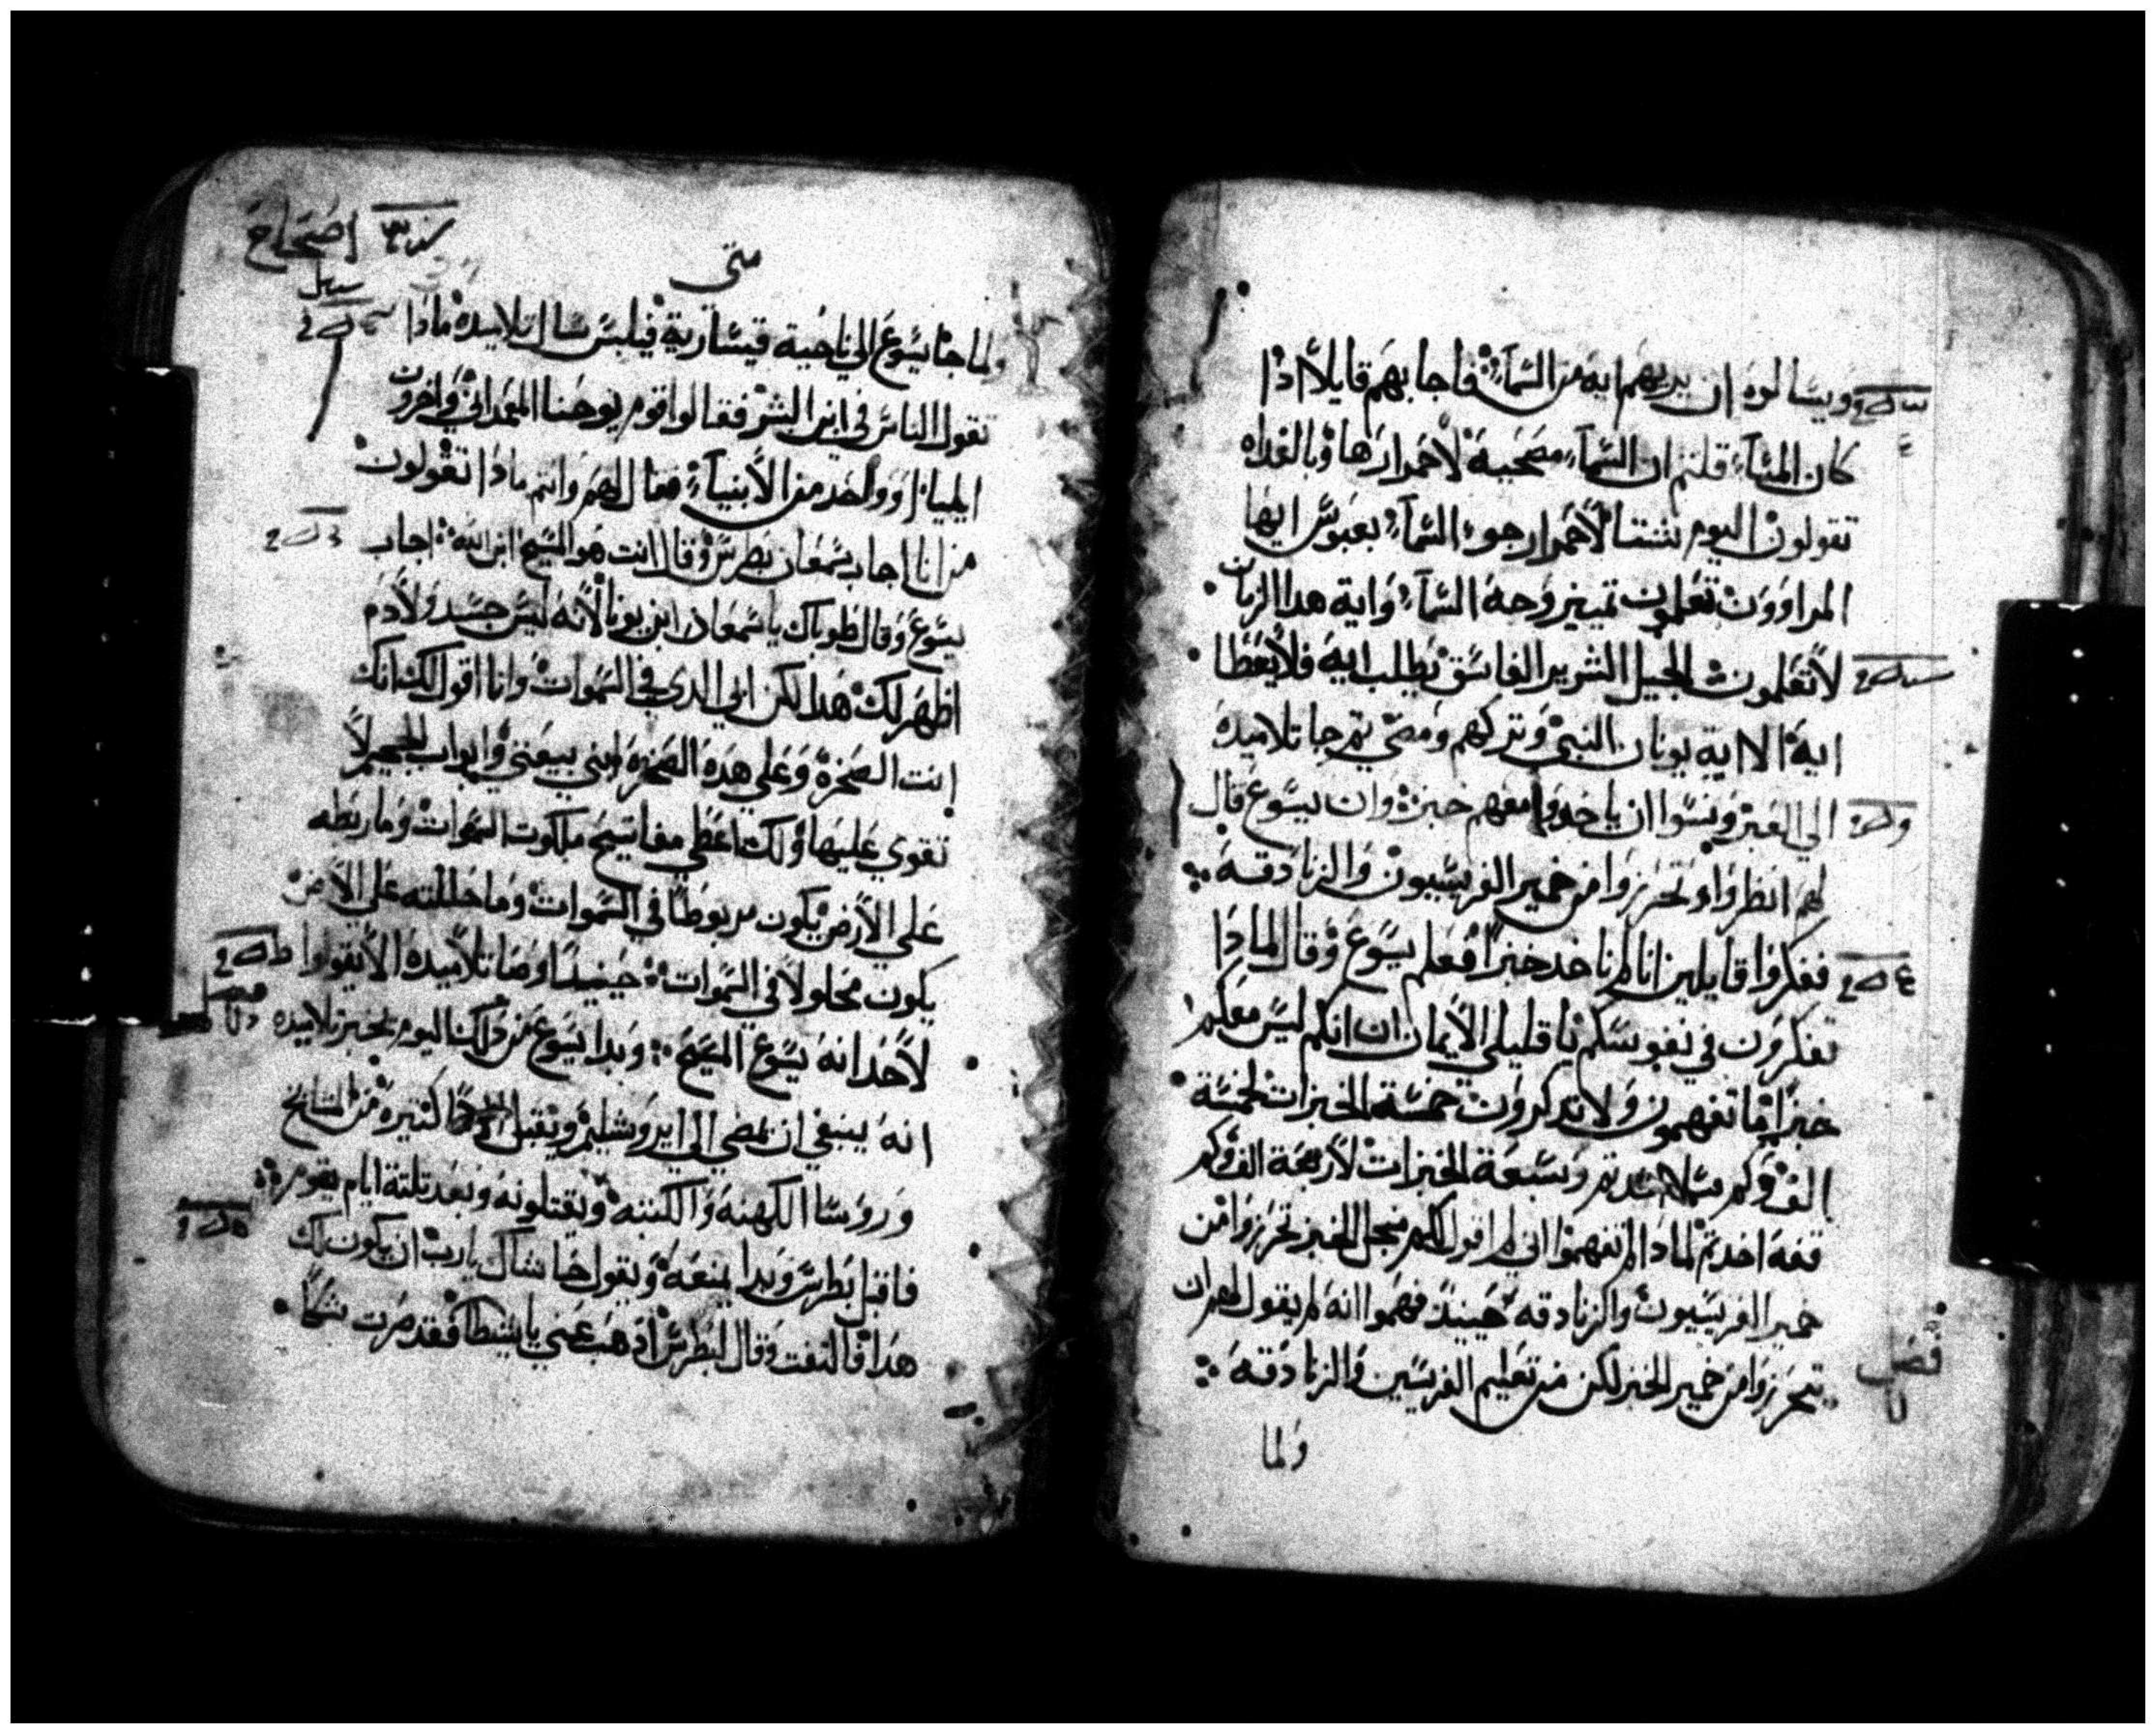 ويسالوه ان يريهم ايه من السماء فاجابهم قايلا اذا
كان المساء قلتم ان السماء مصحيه لاحمرارها وبالغداه
تقولون اليوم شتا لاحمرار جو السماء بعبوس ايها
المراوون تعلمون تمييز وجه السماء واية هدا الزمان
لا تعلمون الجيل الشرير الفاسق يطلب ايه فلا يعطا
ايه الا اية يونان النبي وتركهم ومضي تم جا تلاميده
الي العبر ونسوا ان ياخدوا معهم خبز وان يسوع قال
لهم انظروا وتحرزوا من خمير الفريسيون والزنادقه
ففكروا قايلين انا لم ناخد خبزا فعلم يسوع وقال لمادا
تفكرون في نفوسكم يا قليلي الايمان ان انكم ليس معكم
خبزا ما تفهمون ولا تدكرون خمسة الخبزات لخمسة
الف وكم سل اخدتم وسبعة الخبزات لاربعة الف وكم
قفه اخدتم لمادا لم تفهموا اني لم اقول لكم من اجل الخبز تحرزوا من
خمير الفريسيون والزنادقه حينيد فهموا انه لم يقول لهم ان
تتحرزوا من خمير الخبز لكن من تعليم الفريسين والزنادقه
فصل
ولما
اصحاح
متى
ولما جا يسوع الي ناحية قيسارية فيلبس سال تلاميده مادا
تقول الناس في ابن البشر فقالوا قوم يوحنا المعمداني واخرون
ايليا او واحد من الانبياء فقال لهم وانتم مادا تقولون
من انا اجاب سمعان بطرس وقال انت هو المسيح ابن الله اجاب
يسوع وقال طوباك يا سمعان ابن يونا لانه ليس جسد ولا دم
اظهر لك هدا لكن ابي الدي في السموات وانا اقول لك انك
انت الصخرة وعلي هده الصخره ابني بيعتي وابواب الجحيم لا
تقوي عليها ولك اعطي مفاتيح ملكوت السموات وما ربطه
علي الارض يكون مربوطا في السموات وما حللته علي الارض
يكون محلولا في السموات حينيد اوصا تلاميده الا يقولوا
لاحد انه يسوع المسيح وبدا يسوع من دلك اليوم يخبر تلاميده
انه ينبغي ان يمضي الي ايروشليم ويقبل كتيره من المشايخ
وروسا الكهنه والكتبه ويقتلونه وبعد تلتة ايام يقوم
فاقبل بطرس وبدا يمنعه ويقول حاشاك يارب ان يكون لك
هدا فالتفت وقال لبطرس ادهب عني يا شيطان فقد صرت شكا